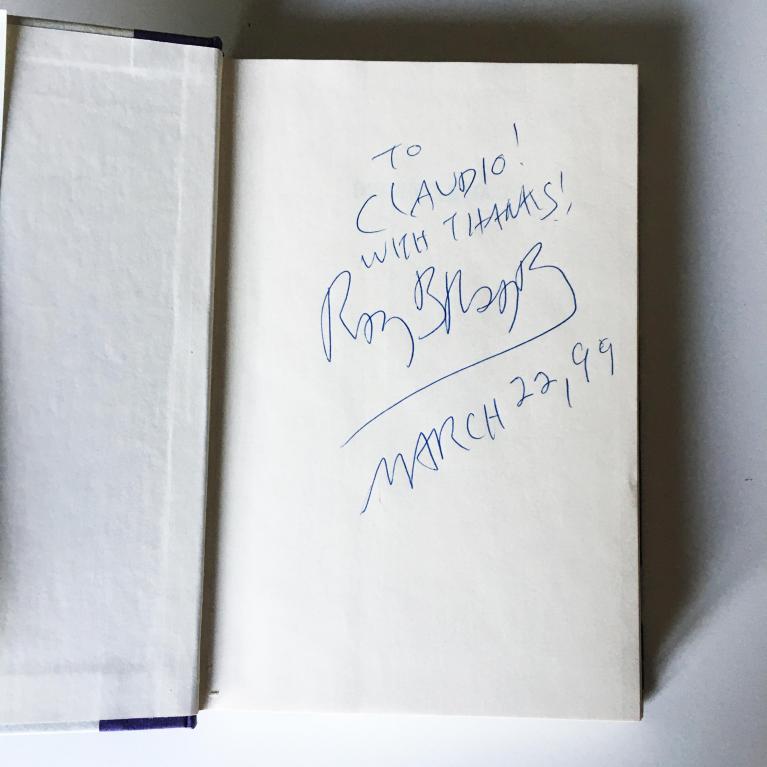 TO
CLAUDIO!
WITH THANKS!
Ray Bradbury
MARCH 22, 99